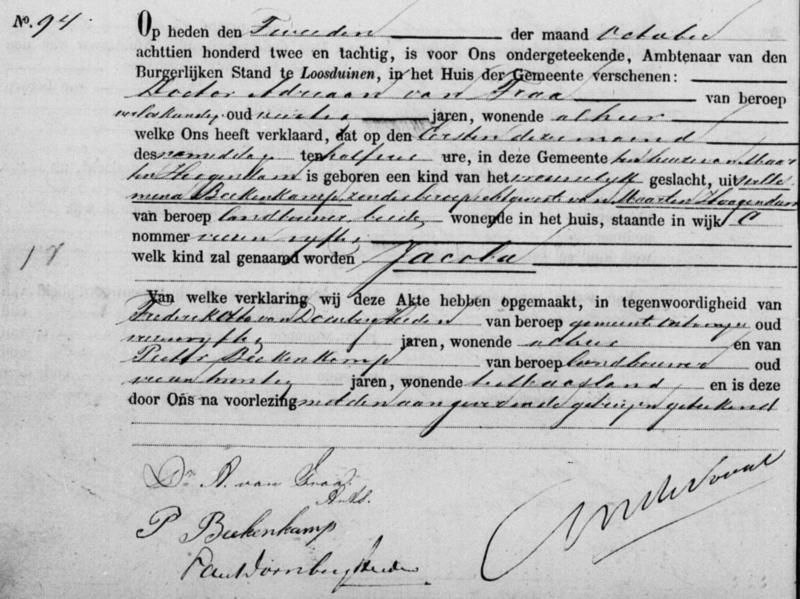 No. 94.
Op heden den Tweeden der maand October
achttien honderd twee en tachtig, is voor Ons ondergeteekende, Ambtenaar van den
Burgerlijken Stand te Loosduinen, in het Huis der Gemeente verschenen:
Doctor Adriaan van Traa van beroep
oud jaren, wonende alhier
welke Ons heeft verklaard, dat op den Eersten dezer maand
des namiddags ten half ure, in deze Gemeente ten huize van Maar
ten Hoogendam is geboren een kind van het vrouwelijk geslacht, uit Wille
mena Beekenkamp zonder beroep echtgenoote van Maarten Hoogendam
van beroep landbouwer beide wonende in het huis, staande in wijk C
nommer vier en vijftig
17
welk kind zal genaamd worden Jacoba
Van welke verklaring wij deze Akte hebben opgemaakt, in tegenwoordigheid van
Frederik van Doornberg Heiden van beroep gemeente ontvanger oud
jaren, wonende alhier en van
Pieter Beekenkamp van beroep landbouwer oud
jaren, wonende te Maasland en is deze
door Ons na voorlezing met den aangever en de getuigen geteekend
Dr. A. van Traa.
Arts.
P Beekenkamp
van Doornberg Heiden